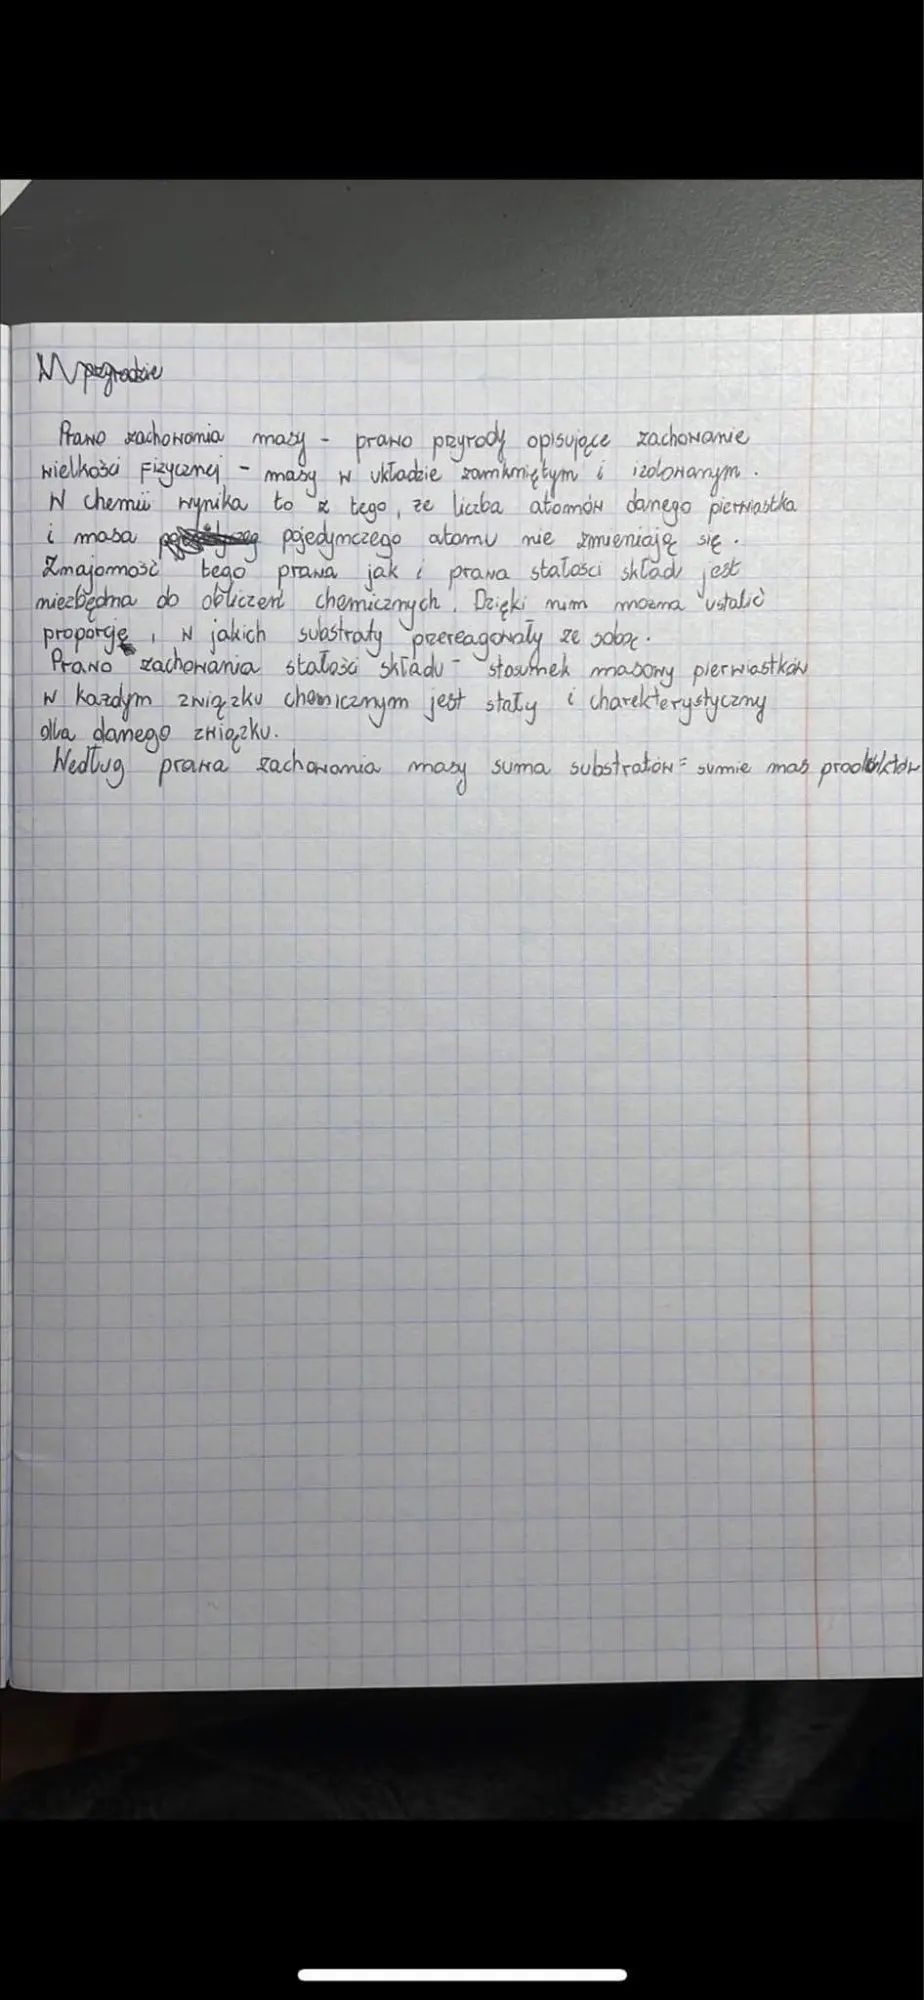 W przyrodzie
Prawo zachowania masy - prawo przyrody opisujące zachowanie
wielkości fizycznej - masy w układzie zamkniętym i izolowanym.
W chemii wynika to z tego, ze liczba atomów danego pierwiastka
i masa pojedynczego atomu nie zmieniają się.
Znajomość tego prawa jak i prawa stałości skład jest
niezbędna do obliczeń chemicznych. Dzięki nim mozna ustalić
proporcję, w jakich substraty przereagowały ze sobą.
Prawo zachowania stałości składu - stosunek masowy pierwiastków
w każdym związku chemicznym jest stały i charekterystyczny
dla danego związku.
Według prawa zachowania masy suma substratów = sumie mas produktów